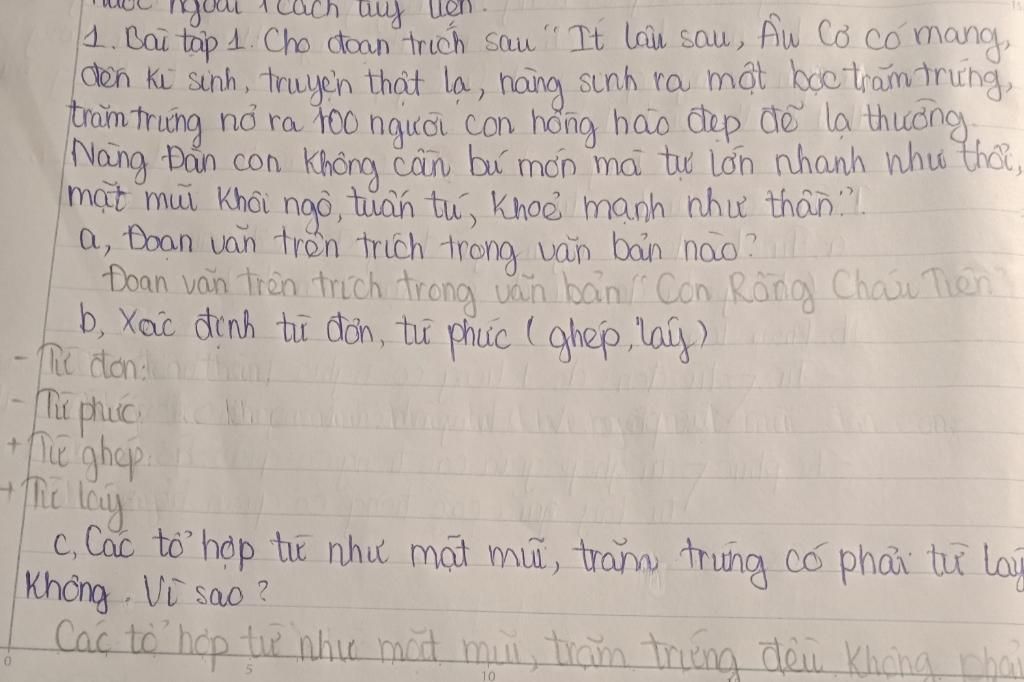 ngoài 1 cách tùy tiện.
1. Bài tập 1. Cho đoạn trích sau "Ít lâu sau, Âu Cơ có mang,
đến kì sinh, truyện thật lạ, nàng sinh ra một bọc trăm trứng,
trăm trứng nở ra 100 người con hồng hào đẹp đẽ lạ thường.
Nàng Đàn con không cần bú mớn mà tự lớn nhanh như thổi,
mặt mũi khôi ngô, tuấn tú, khoẻ mạnh như thần".
a, Đoạn văn trên trích trong văn bản nào?
Đoan văn trên trích trong văn bản "Con Rồng Cháu Tiên"
b, Xác định từ đơn, từ phức (ghép, láy)
- Từ đơn:
- Từ phức
+ Từ ghép:
+ Từ láy
c, Các tổ hợp từ như mặt mũi, trăm trứng có phải từ láy
không. Vì sao?
Các tổ hợp từ như mặt mũi, trăm trứng đều không phải
0 5 10